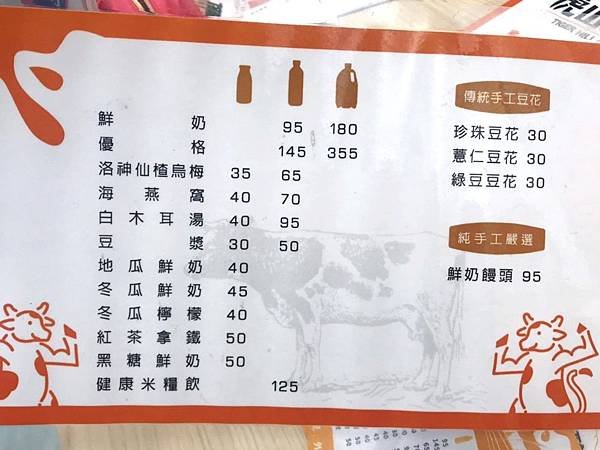 鮮奶 95 180
優格 145 355
洛神仙楂烏梅 35 65
海燕窩 40 70
白木耳湯 40 95
豆漿 30 50
地瓜鮮奶 40
冬瓜鮮奶 45
冬瓜檸檬 40
紅茶拿鐵 50
黑糖鮮奶 50
健康米糧飲 125
傳統手工豆花
珍珠豆花 30
薏仁豆花 30
綠豆豆花 30
純手工嚴選
鮮奶饅頭 95